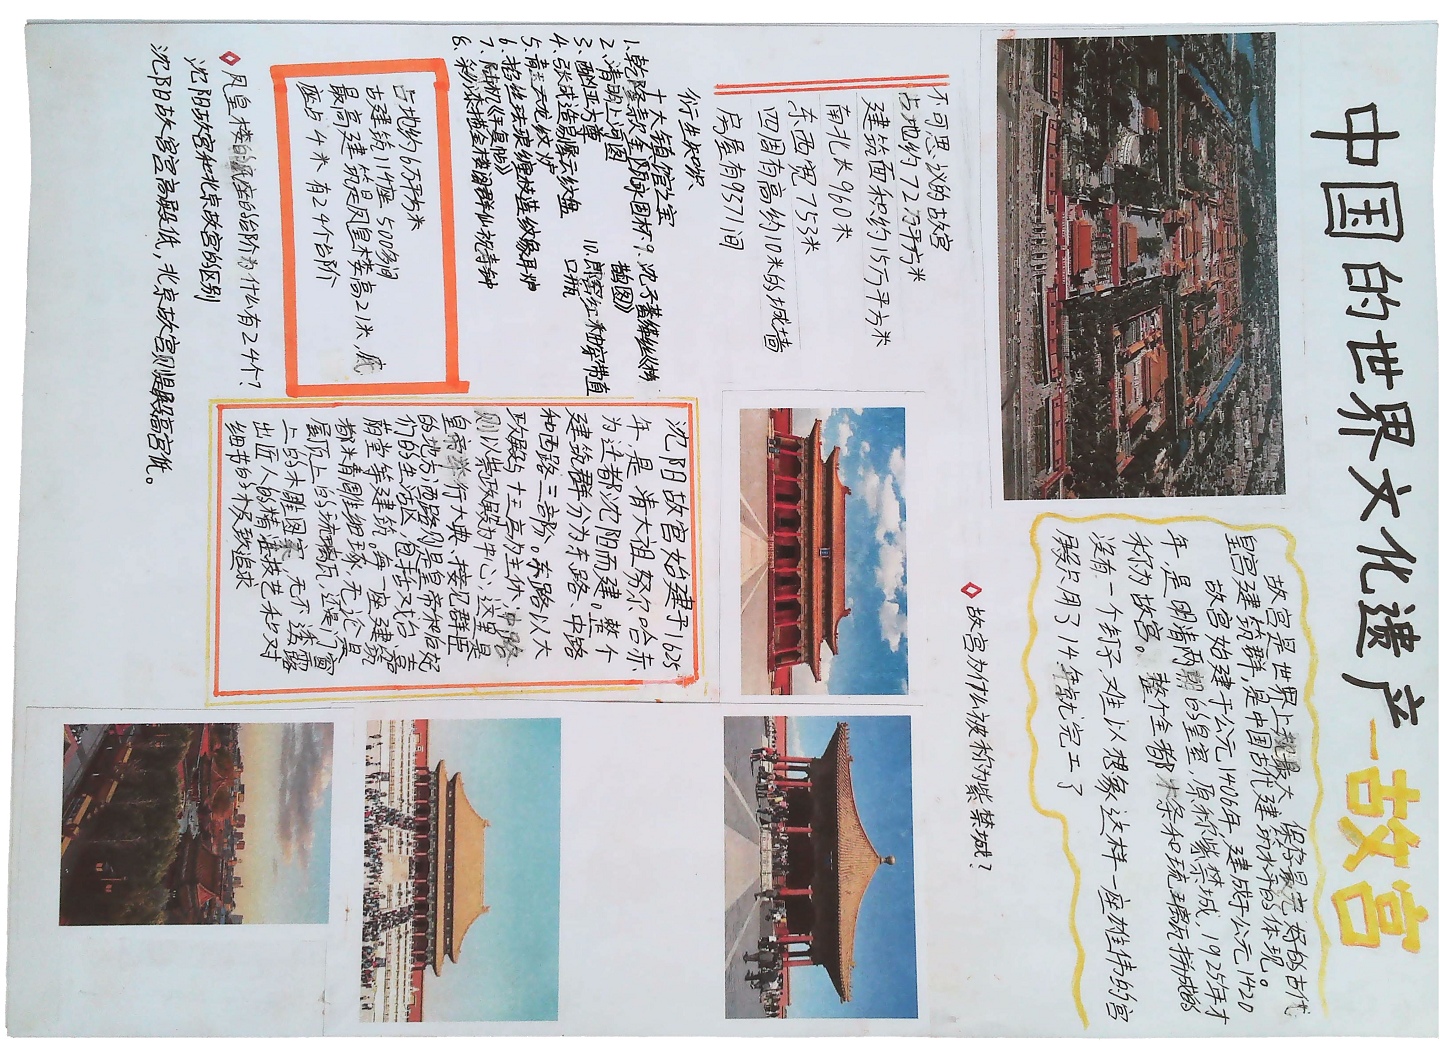 中国的世界文化遗产—故宫
故宫是世界上规最大 保存最完好的古代
皇宫建筑群,是中国古代建筑水平的体现。
故宫始建于公元1406年 建成于公元1420
年,是明清两朝的皇室,原称紫禁城,1925年才
称为故宫。整个都 木条和琉璃瓦拼成的
没有一个钉子,难以想象这样一座雄伟的宫
殿只用了14年就完工了
故宫为什么被称为紫禁城?
不可思议的故宫
占地约72万平方米
建筑面积约15万平方米
南北长960米
东西宽753米
四周有高约10米的城墙
房屋有9371间
衍生知识
十大镇馆之宝
1.乾隆款金瓯永固杯
2.清明上河图
3.酗亚方尊
4.张成造剔犀云纹盘
5.青玉云龙纹炉
6.掐丝珐琅缠枝莲纹象耳炉
7.陆机《平复帖》
8.彩漆楼金楼阁群仙祝寿钟
9.沈子蕃缂丝《梅
鹊图》
10.郎窑红釉穿带直
口瓶
沈阳故宫始建于1625
年,是清太祖努尔哈赤
为迁都沈阳而建。整个
建筑群分为东路、中路
和西路三部。东路以大
政殿与十王亭为主体,中路
则以崇政殿为中心,这里是
皇帝举行大典、接见群臣
的地方,西路则是皇帝和后妃
们的生活区,包括文溯阁、嘉
荫堂等建筑。每一座建筑
都木青雕细琢,无论是
屋顶上的琉璃瓦,还是门窗
上的木雕图案,无不透露
出匠人的精湛技艺和对
细节的极致追求
占地约6万平方米
古建筑114座 500多间
最高建筑是凤皇楼高21米,底
座占4米 有24个台阶
凤皇楼的底座的台阶为什么有24个?
沈阳故宫和北京故宫的区别
沈阳故宫宫高殿低,北京故宫则是殿高宫低。